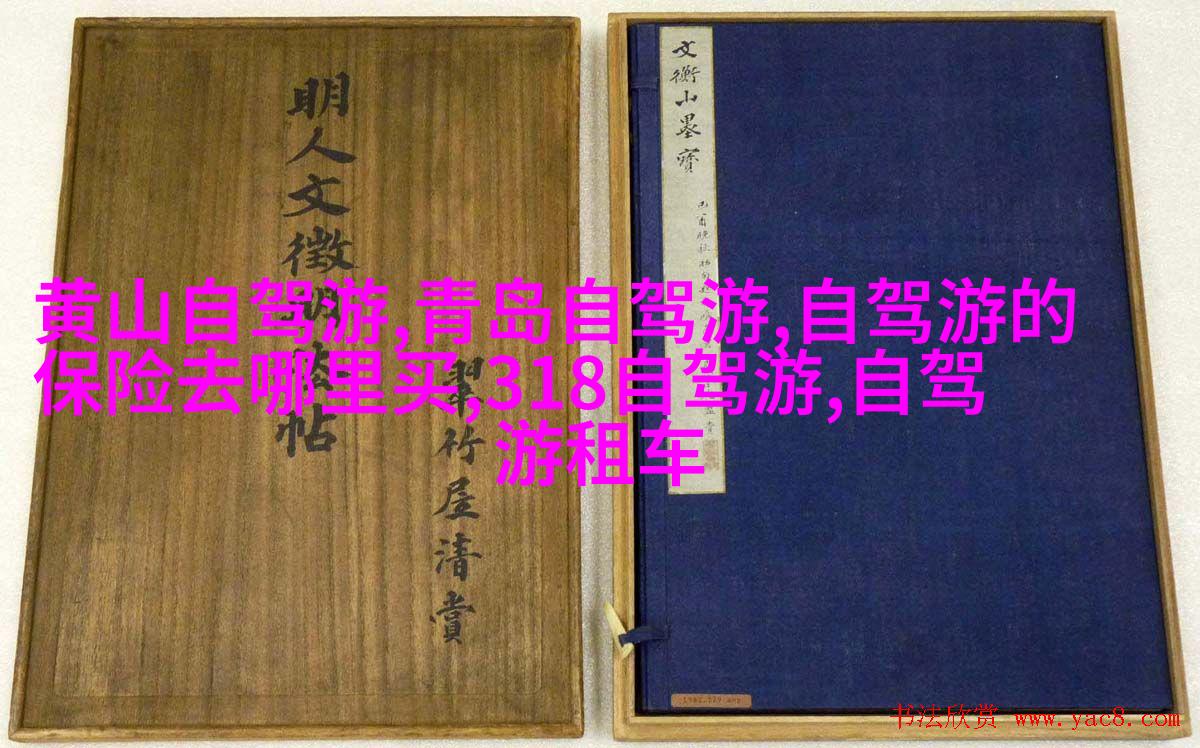 黄山自驾游,青岛自驾游,自驾游的
保险去哪里买,318自驾游,自驾
游租车
明人文徵明帖
翠竹屋清賞
文衡山墨寶
己酉晚秋
书法欣赏 www.yac8.com